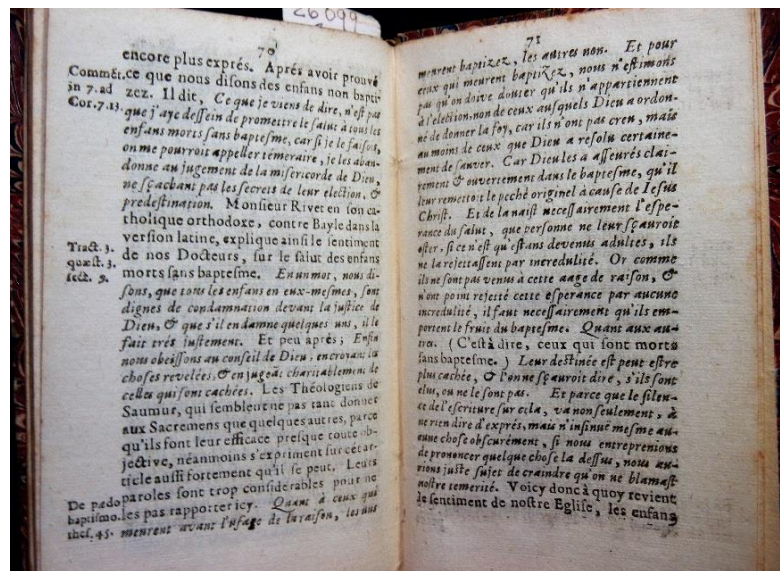 26099
70
encore plus exprés. Aprés avoir prouvé
Commẽt. ce que nous disons des enfans non bapti-
in 7. ad zez. Il dit, Ce que je viens de dire, n'est pas
Cor. 7. 13. que j'aye dessein de promettre le salut à tous les
enfans morts sans baptesme, car si je le faisois,
on me pourroit appeller témeraire, je les aban-
donne au jugement de la misericorde de Dieu,
ne sçachant pas les secrets de leur election, &
predestination. Monsieur Rivet en son ca-
tholique orthodoxe, contre Bayle dans la
Tract. 3. version latine, explique ainsi le sentiment
quæst. 3. de nos Docteurs, sur le salut des enfans
sect. 9. morts sans baptesme. En un mot, nous di-
sons, que tous les enfans en eux-mesmes, sont
dignes de condamnation devant la justice de
Dieu, & que s'il en damne quelques uns, il le
fait trés justement. Et peu aprés; Enfin
nous obeissons au conseil de Dieu, en croyant les
choses revelées, & en jugeãt charitablement de
celles qui sont cachées. Les Théologiens de
Saumur, qui semblent ne pas tant donner
aux Sacremens que quelques autres, parce
qu'ils font leur efficace presque toute ob-
jective, néanmoins s'expriment sur cét ar-
ticle aussi fortement qu'il se peut. Leurs
De pædo paroles sont trop considerables pour ne
baptismo. les pas rapporter icy. Quant à ceux qui
thes. 45. meurent avant l'usage de la raison, les uns
71
meurent baptizez, les autres non. Et pour
ceux qui meurent baptizez, nous n'estimons
pas qu'on doive douter qu'ils n'appartiennent
à l'election, non de ceux ausquels Dieu a ordon-
né de donner la foy, car ils n'ont pas creu, mais
au moins de ceux que Dieu a resolu certaine-
ment de sauver. Car Dieu les a asseurés clai-
rement & ouvertement dans le baptesme, qu'il
leur remettoit le peché originel à cause de Iesus
Christ. Et de là naist necessairement l'espe-
rance du salut, que personne ne leur sçauroit
oster, si ce n'est qu'estans devenus adultes, ils
ne la rejettassent par incredulité. Or comme
ils ne sont pas venus à cette aage de raison, &
n'ont point rejetté cette esperance par aucune
incredulité, il faut necessairement qu'ils em-
portent le fruit du baptesme. Quant aux au-
tres. (C'est à dire, ceux qui sont morts
sans baptesme.) Leur destinée est peut estre
plus cachée, & l'on ne sçauroit dire, s'ils sont
elus, ou ne le sont pas. Et parce que le silen-
ce de l'escriture sur cela, va non seulement, à
ne rien dire d'exprés, mais n'insinuë mesme au-
cune chose obscurément, si nous entreprenions
de prononcer quelque chose la dessus, nous au-
rions juste sujet de craindre qu'on ne blamast
nostre temerité. Voicy donc à quoy revient
le sentiment de nostre Eglise, les enfans